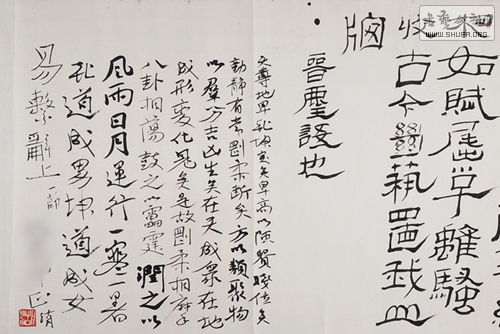 如賦屈草離騷
收古今
晉璽語也
天尊地卑乾坤定矣卑高以陳貴賤位矣
動静有常剛柔斷矣方以類聚物
以羣分吉凶生矣在天成象在地
成形變化見矣是故剛柔相摩
八卦相蕩鼓之以雷霆潤之以
風雨日月運行一寒一暑
乾道成男坤道成女
易繫辭上
WWW.SHUFA.ORG